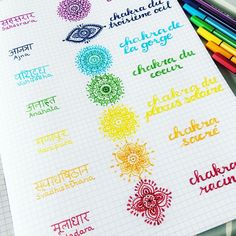 सहस्रार
Sahasrara
chakra du
troisième oeil
आज्ञा
Ajna
chakra de
la gorge
विशुद्ध
Vishuddha
chakra du
coeur
अनाहत
Anahata
chakra du
plexus solaire
मणिपूर
Manipura
chakra
sacré
स्वाधिष्ठान
Svadhisthana
chakra
racine
मूलाधार